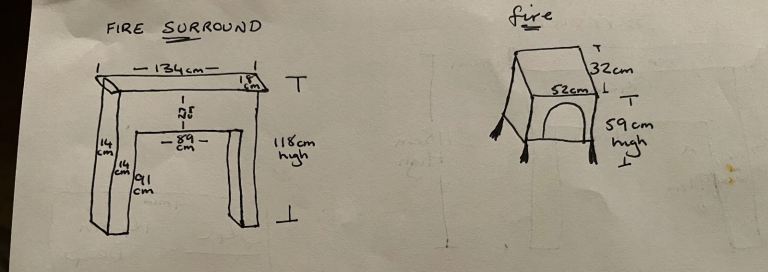 FIRE SURROUND
134cm
18
cm
89
cm
14
cm
14
cm
91
cm
118cm
high
fire
32cm
52cm
59cm
high